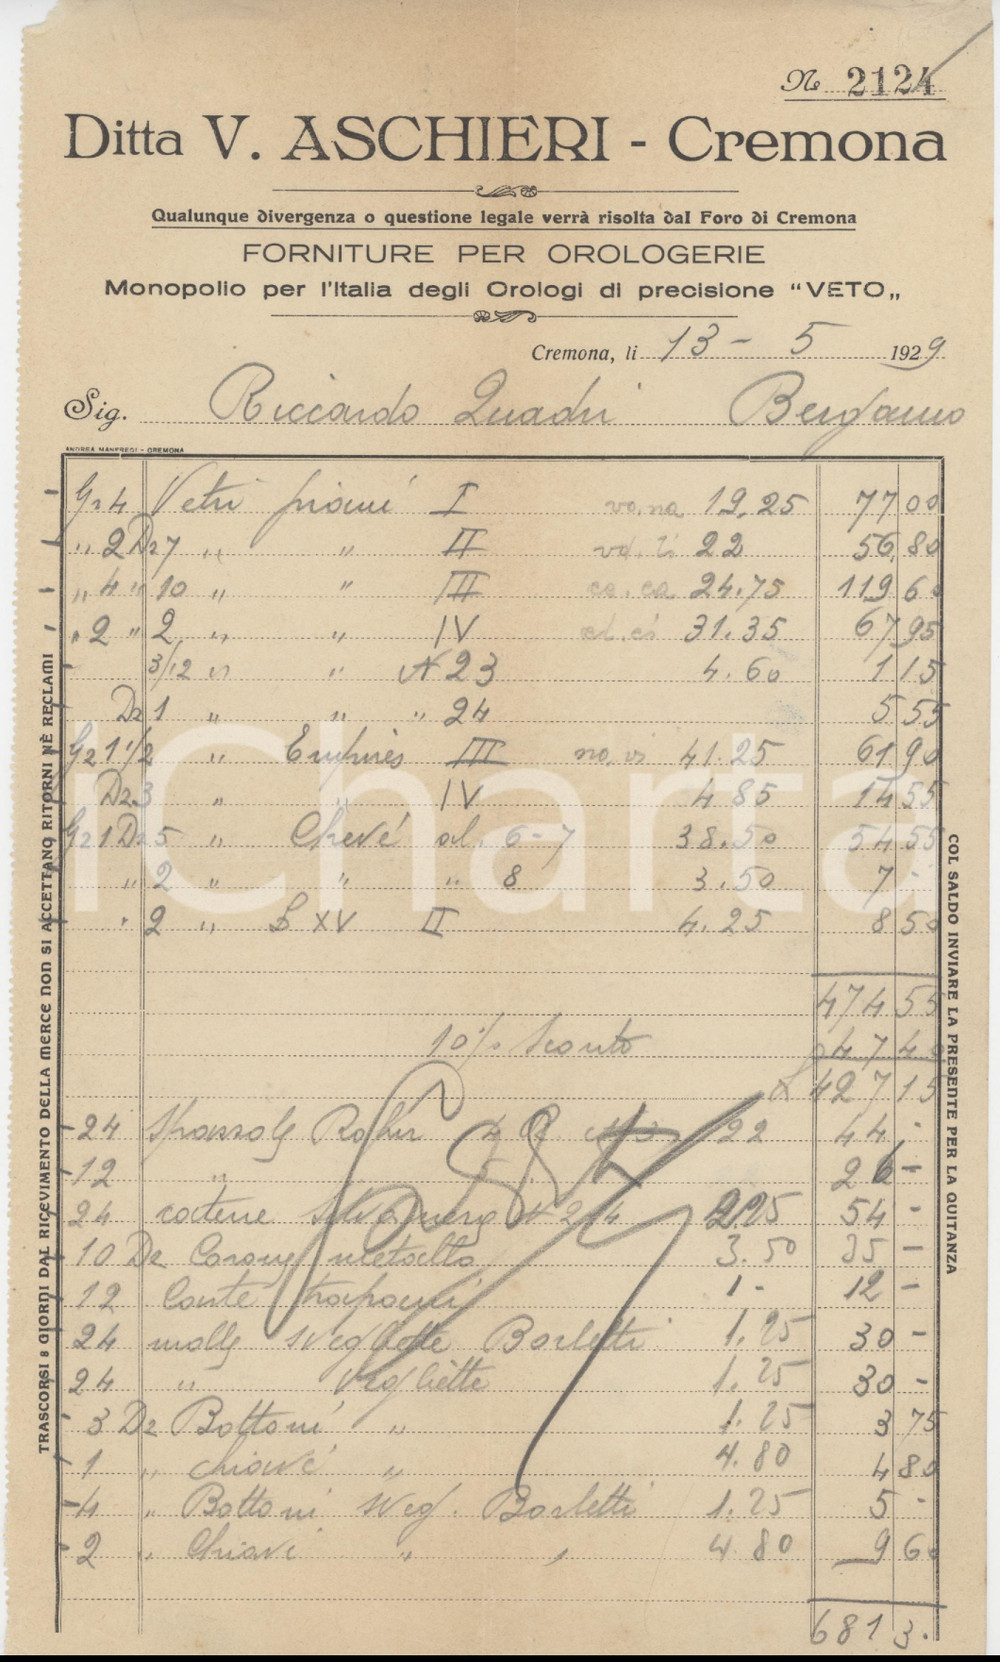 N. 2124
Ditta V. ASCHIERI - Cremona
Qualunque divergenza o questione legale verrà risolta dal Foro di Cremona
FORNITURE PER OROLOGERIE
Monopolio per l'Italia degli Orologi di precisione “VETO„
Cremona, li 13 - 5 1929
Sig. Riccardo Quadri Bergamo
ANDREA MANFREDI - CREMONA
Gr 4 Vetri piani I vo.na 19,25 77 00
" 2 Dz 7 " " II vd. li 22 56,80
" 4 " 10 " " III ca.ca 24.75 119 60
" 2 " 2 " " IV 31.35 67 95
3/12 " " N 23 4.60 1 15
Dz 1 " " " 24 5 55
Gz 1 1/2 " III no.vi 41.25 61 90
Dz 3 " " IV 4 85 14 55
Gz 1 Dz 5 " Chevé al. 6-7 38.50 54 55
" 2 " " " 8 3.50 7 -
" 2 " L XV II 4.25 8 50
474 55
10% Sconto 47 40
£ 427 15
24 22 44 -
12 " 26 -
24 N 24 2.25 54 -
10 Dz metallo 3.50 35 -
12 1 - 12 -
24 molle svegliette Borletti 1.25 30 -
24 " svegliette 1.25 30 -
3 Dz Bottoni " 1.25 3 75
1 " chiavi " 4.80 4 80
4 " Bottoni sveg. Borletti 1.25 5 -
2 " Chiavi " " 4.80 9 60
681 3.
TRASCORSI 8 GIORNI DAL RICEVIMENTO DELLA MERCE NON SI ACCETTANO RITORNI NÈ RECLAMI
COL SALDO INVIARE LA PRESENTE PER LA QUITANZA
iCharta